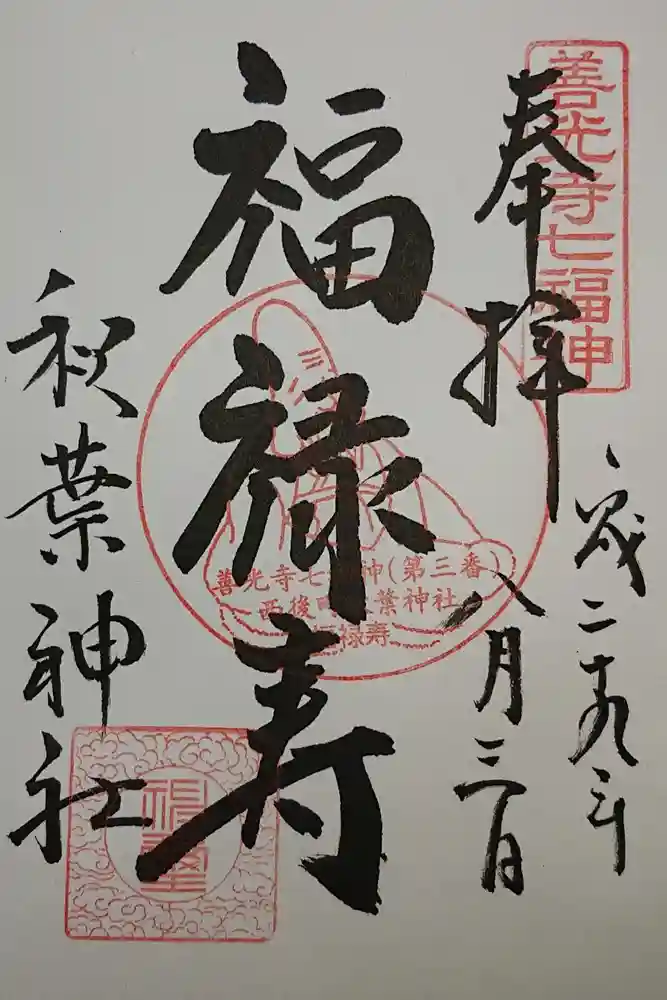 善光寺七福神
奉拝
歳二十九年
八月三日
福禄寿
善光寺七福神(第三番)
西後町秋葉神社
福禄寿
秋葉神社